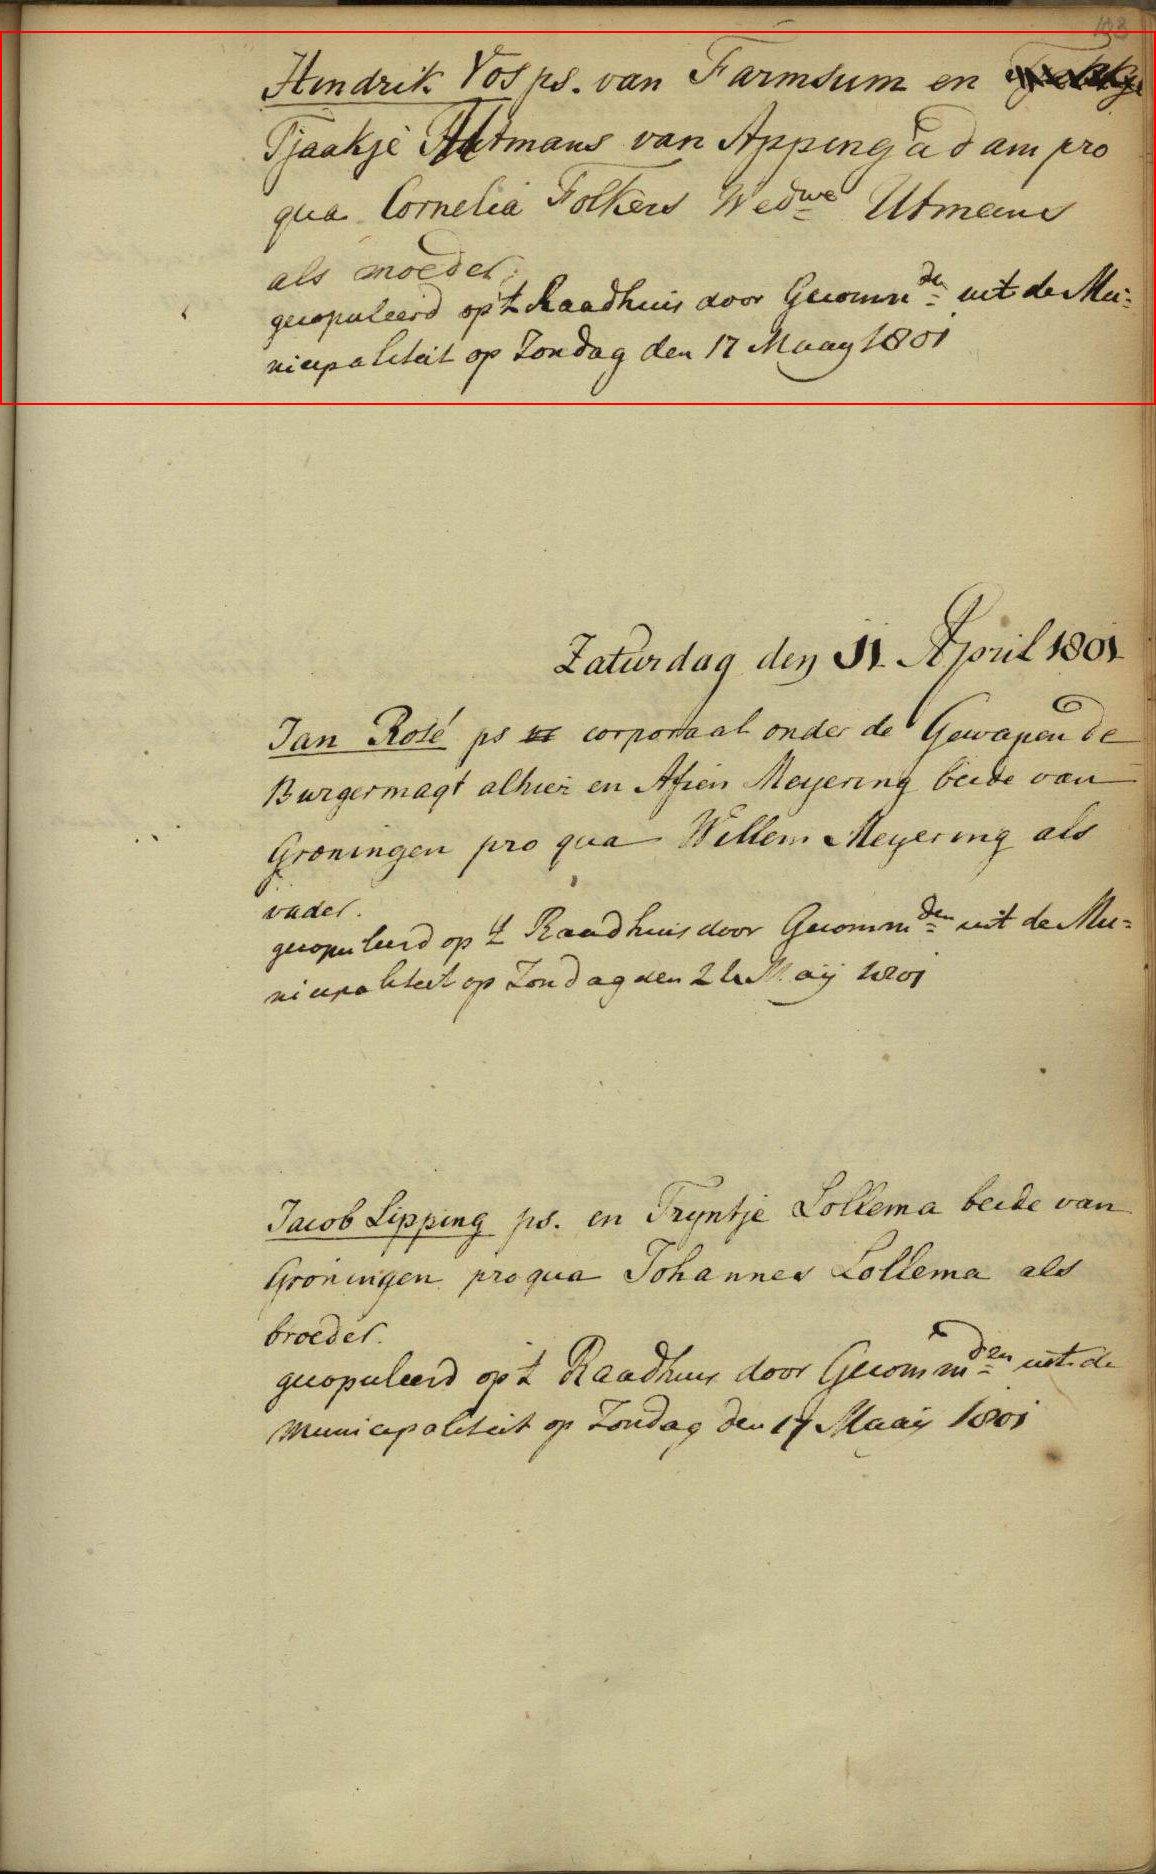 103
Hendrik Vos ps. van Farmsum en
Tjaakje Utmans van Appingadam pro
qua Cornelia Folkers Wedwe Utmans
als moeder
gecopuleerd op 't Raadhuis door Gecommden uit de Mu=
nicipaliteit op Zondag den 17 Maay 1801
Zaturdag den 11 April 1801
Jan Rosé ps corporaal onder de Gewapende
Burgermagt alhier en Afien Meyering beide van
Groningen pro qua Willem Meyering als
vader.
gecopuleerd op 't Raadhuis door Gecommden uit de Mu=
nicipaliteit op Zondag den 24 Maij 1801
Jacob Lipping ps. en Tryntje Lollema beide van
Groningen pro qua Johannes Lollema als
broeder.
gecopuleerd op 't Raadhuis door Gecommden uit de
Municipaliteit op Zondag den 17 Maaij 1801